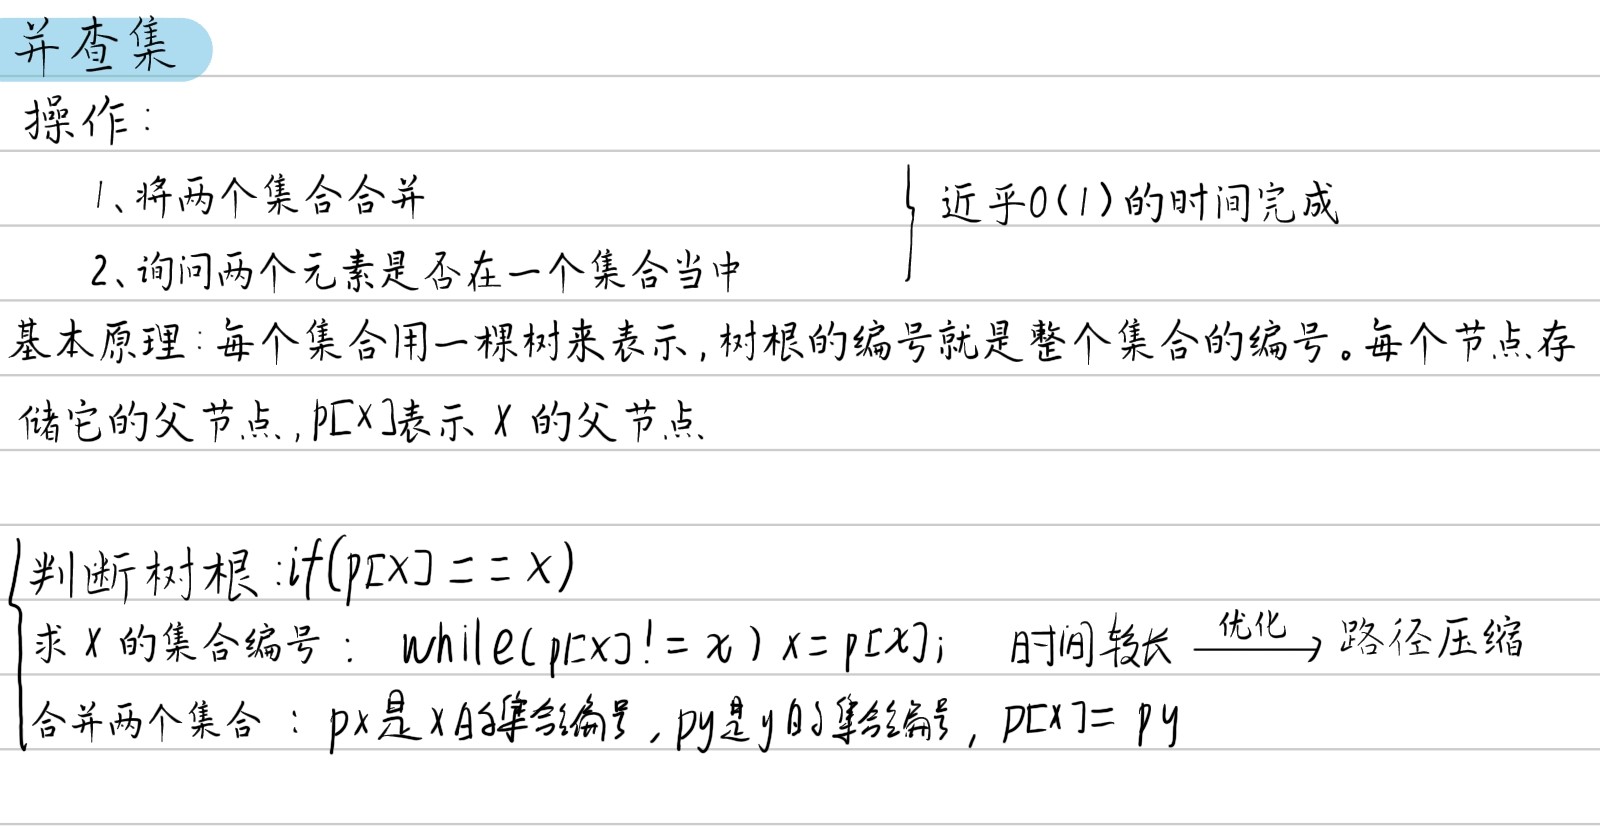 并查集
操作：
1、将两个集合合并
近乎O(1)的时间完成
2、询问两个元素是否在一个集合当中
基本原理：每个集合用一棵树来表示，树根的编号就是整个集合的编号。每个节点存
储它的父节点，p[x]表示 x 的父节点
判断树根：if(p[x] == x)
求 x 的集合编号： while(p[x] != x) x = p[x]; 时间较长 优化 路径压缩
合并两个集合： px是x的集合编号，py是y的集合编号，p[x] = py